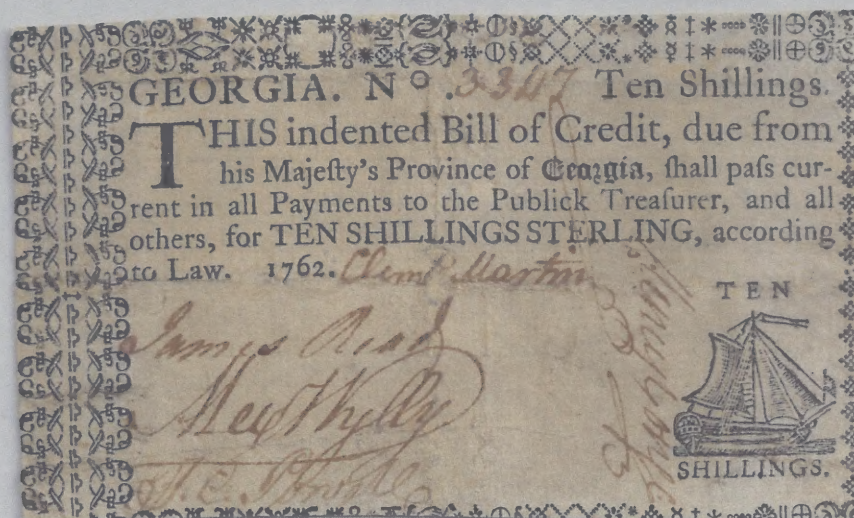 GEORGIA. No. 3347 Ten Shillings.
THIS indented Bill of Credit, due from
his Majeſty's Province of Georgia, ſhall paſs cur-
rent in all Payments to the Publick Treaſurer, and all
others, for TEN SHILLINGS STERLING, according
to Law. 1762. Clemt Martin
James Read
Alex Wylly
TEN
SHILLINGS.